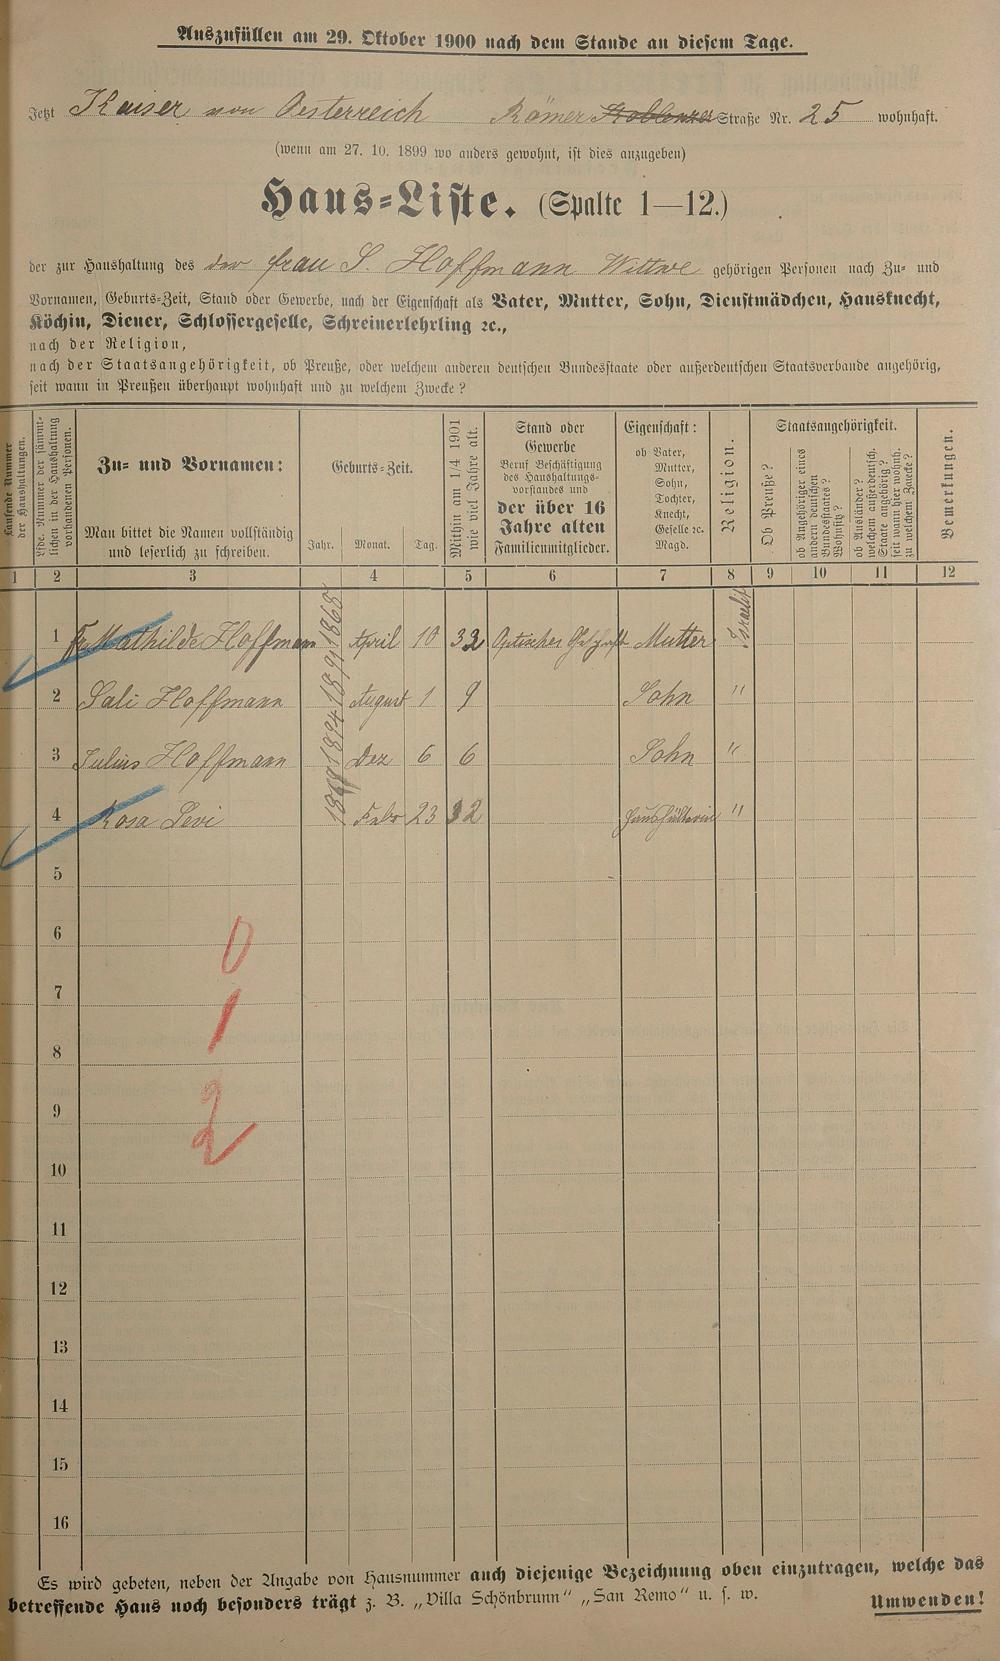 Auszufüllen am 29. Oktober 1900 nach dem Stande an diesem Tage.
Jetzt Kaiser von Oesterreich Römer Koblenzer Straße Nr. 25 wohnhaft.
(wenn am 27. 10. 1899 wo anders gewohnt, ist dies anzugeben)
Haus-Liste. (Spalte 1—12.)
der zur Haushaltung des der frau S. Hoffmann Wittwe gehörigen Personen nach Zu- und
Vornamen, Geburts-Zeit, Stand oder Gewerbe, nach der Eigenschaft als Vater, Mutter, Sohn, Dienstmädchen, Hausknecht,
Köchin, Diener, Schlossergeselle, Schreinerlehrling ꝛc.,
nach der Religion,
nach der Staatsangehörigkeit, ob Preuße, oder welchem anderen deutschen Bundesstaate oder außerdeutschen Staatsverbande angehörig,
seit wann in Preußen überhaupt wohnhaft und zu welchem Zwecke?
Laufende Nummer
der Haushaltungen.
Lfde. Nummer der sämmt-
lichen in der Haushaltung
vorhandenen Personen.
Zu- und Vornamen:
Man bittet die Namen vollständig
und leserlich zu schreiben.
Geburts-Zeit.
Jahr. Monat. Tag.
Mithin am 1/4 1901
wie viel Jahre alt.
Stand oder
Gewerbe
Beruf Beschäftigung
des Haushaltungs-
vorstandes und
der über 16
Jahre alten
Familienmitglieder.
Eigenschaft:
ob Vater,
Mutter,
Sohn,
Tochter,
Knecht,
Geselle ꝛc.
Magd.
Religion.
Staatsangehörigkeit.
Ob Preuße?
ob Angehöriger eines
andern deutschen
Bundesstaates?
Wohnsitz?
ob Ausländer?
welchem außerdeutsch.
Staate angehörig?
seit wann hier wohnh.
zu welchem Zwecke?
Bemerkungen.
1 2 3 4 5 6 7 8 9 10 11 12
1 Fr. Mathilde Hoffmann 1868 April 10 32 Optisches Geschäft Mutter Israelit
2 Sali Hoffmann 1891 August 1 9 Sohn "
3 Julius Hoffmann 1894 Dez 6 6 Sohn "
4 Rosa Levi 1868 Febr 23 32 Haushälterin "
5
6
0
7
1
8
9
2
10
11
12
13
14
15
16
Es wird gebeten, neben der Angabe von Hausnummer auch diejenige Bezeichnung oben einzutragen, welche das
betreffende Haus noch besonders trägt z. B. „Villa Schönbrunn" „San Remo" u. s. w.
Umwenden!